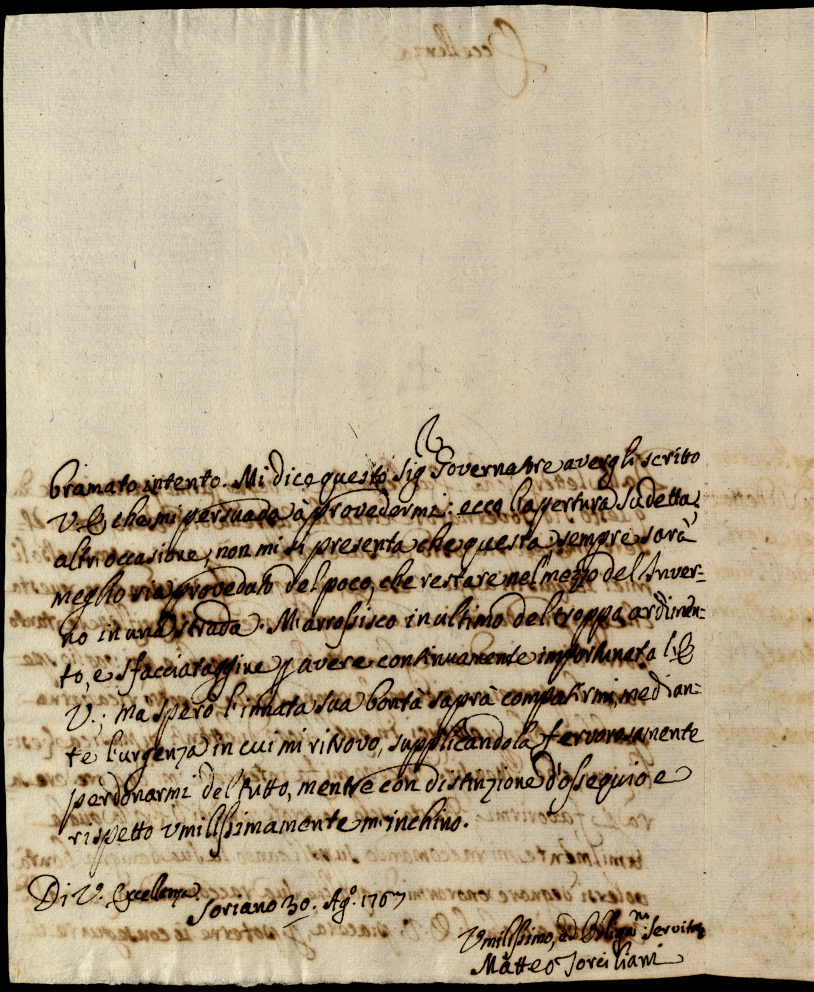 bramato intento. Mi dice questo Sig Governatore avergli scritto
V. E. che mi persuada à provedermi: ecco l'apertura sudetta,
altr'occasione, non mi si presenta che questa, sempre sarà
meglio sia proveduto del poco, che restare nel mezzo del Inver=
no in una strada. M'arrossisco in ultimo del troppa ardimen=
to, e sfacciataggine p avere continuamente importunata l'E
V.; ma spero l'innata sua bontà saprà compatirmi, median=
te l'urgenza in cui mi ritrovo, supplicandola fervorosamente
perdonarmi del tutto, mentre con distinzione d'ossequio, e
rispetto vmilissimamente m'inchino.
Di V. Eccellenza
Soriano 30. Ag.º 1767
Vmilissimo, ed Obligm Servitre
Matteo